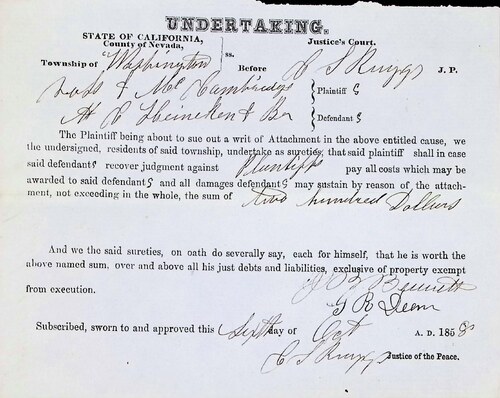 UNDERTAKING.
STATE OF CALIFORNIA,
County of Nevada,
ss.
Justice's Court.
Township of Washington Before C S Ruggs J. P.
& Mc Cambridge Plaintiff s
At C Heineken & Defendant s
The Plaintiff being about to sue out a writ of Attachment in the above entitled cause, we
the undersigned, residents of said township, undertake as sureties, that said plaintiff shall in case
said defendants recover judgment against Plaintiffs pay all costs which may be
awarded to said defendants and all damages defendants may sustain by reason of the attach-
ment, not exceeding in the whole, the sum of two hundred Dollars
And we the said sureties, on oath do severally say, each for himself, that he is worth the
above named sum, over and above all his just debts and liabilities, exclusive of property exempt
from execution.
Bennett
G R Deem
Subscribed, sworn to and approved this Sixth day of Oct A. D. 1858
C S Ruggs Justice of the Peace.